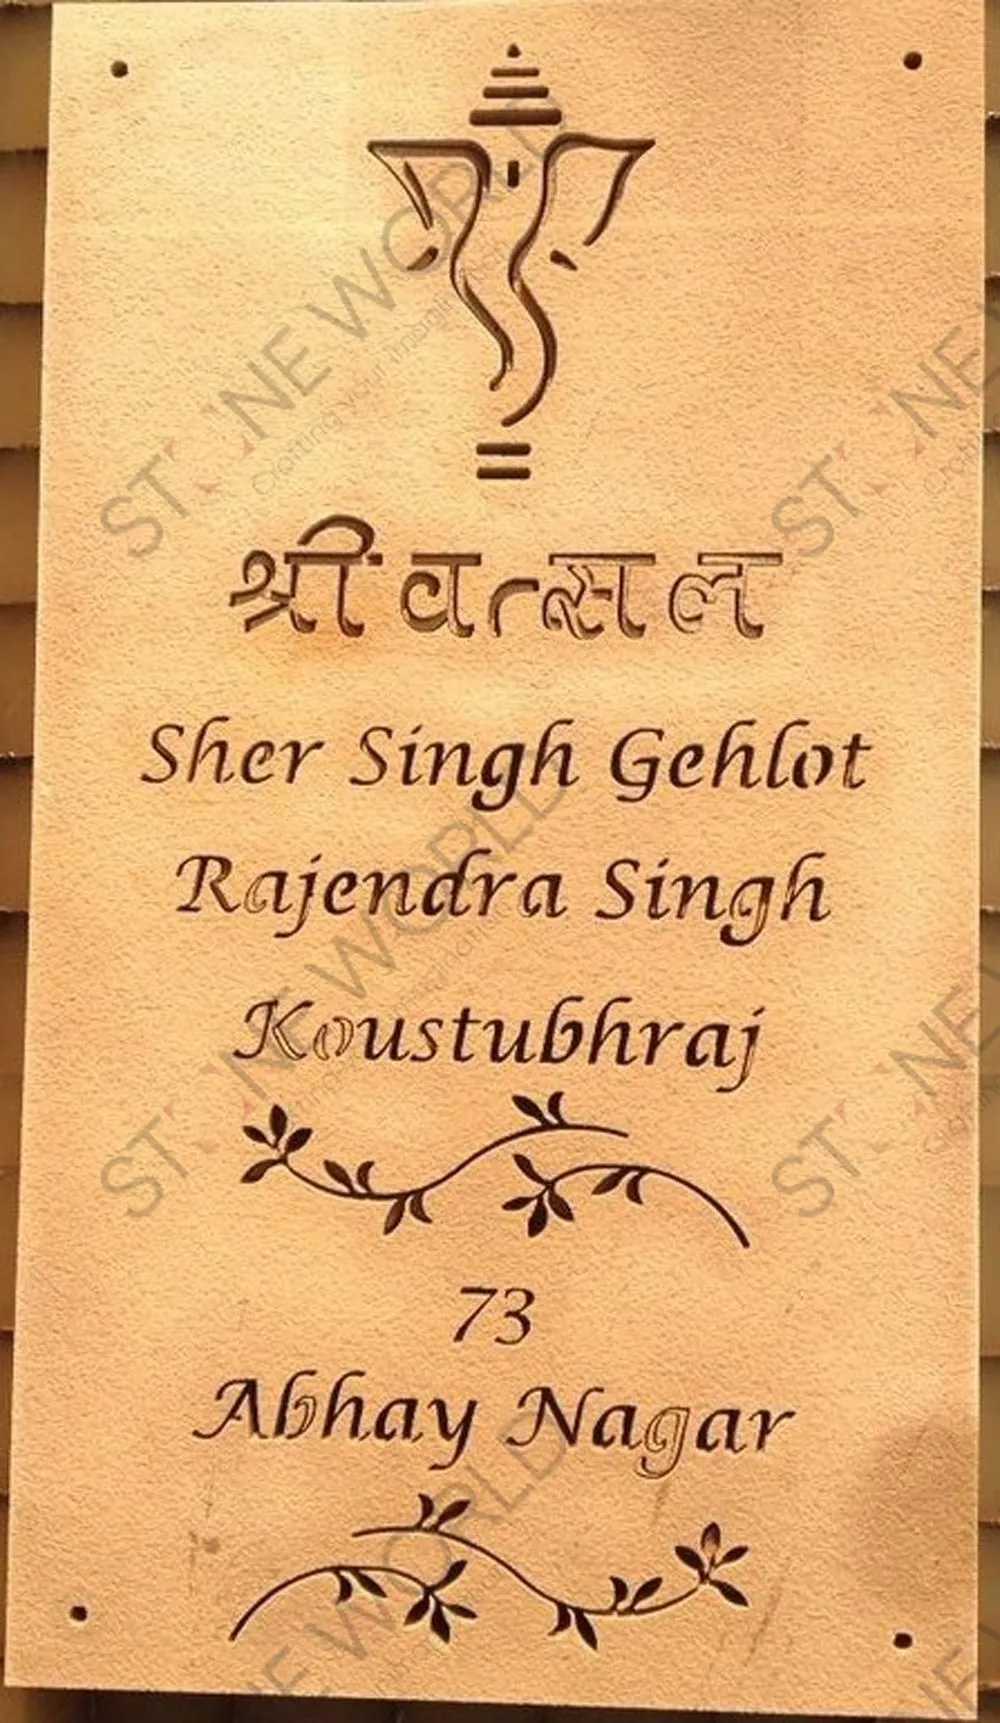 श्री वत्सल
Sher Singh Gehlot
Rajendra Singh
Koustubhraj
73
Abhay Nagar
STONE WORLD